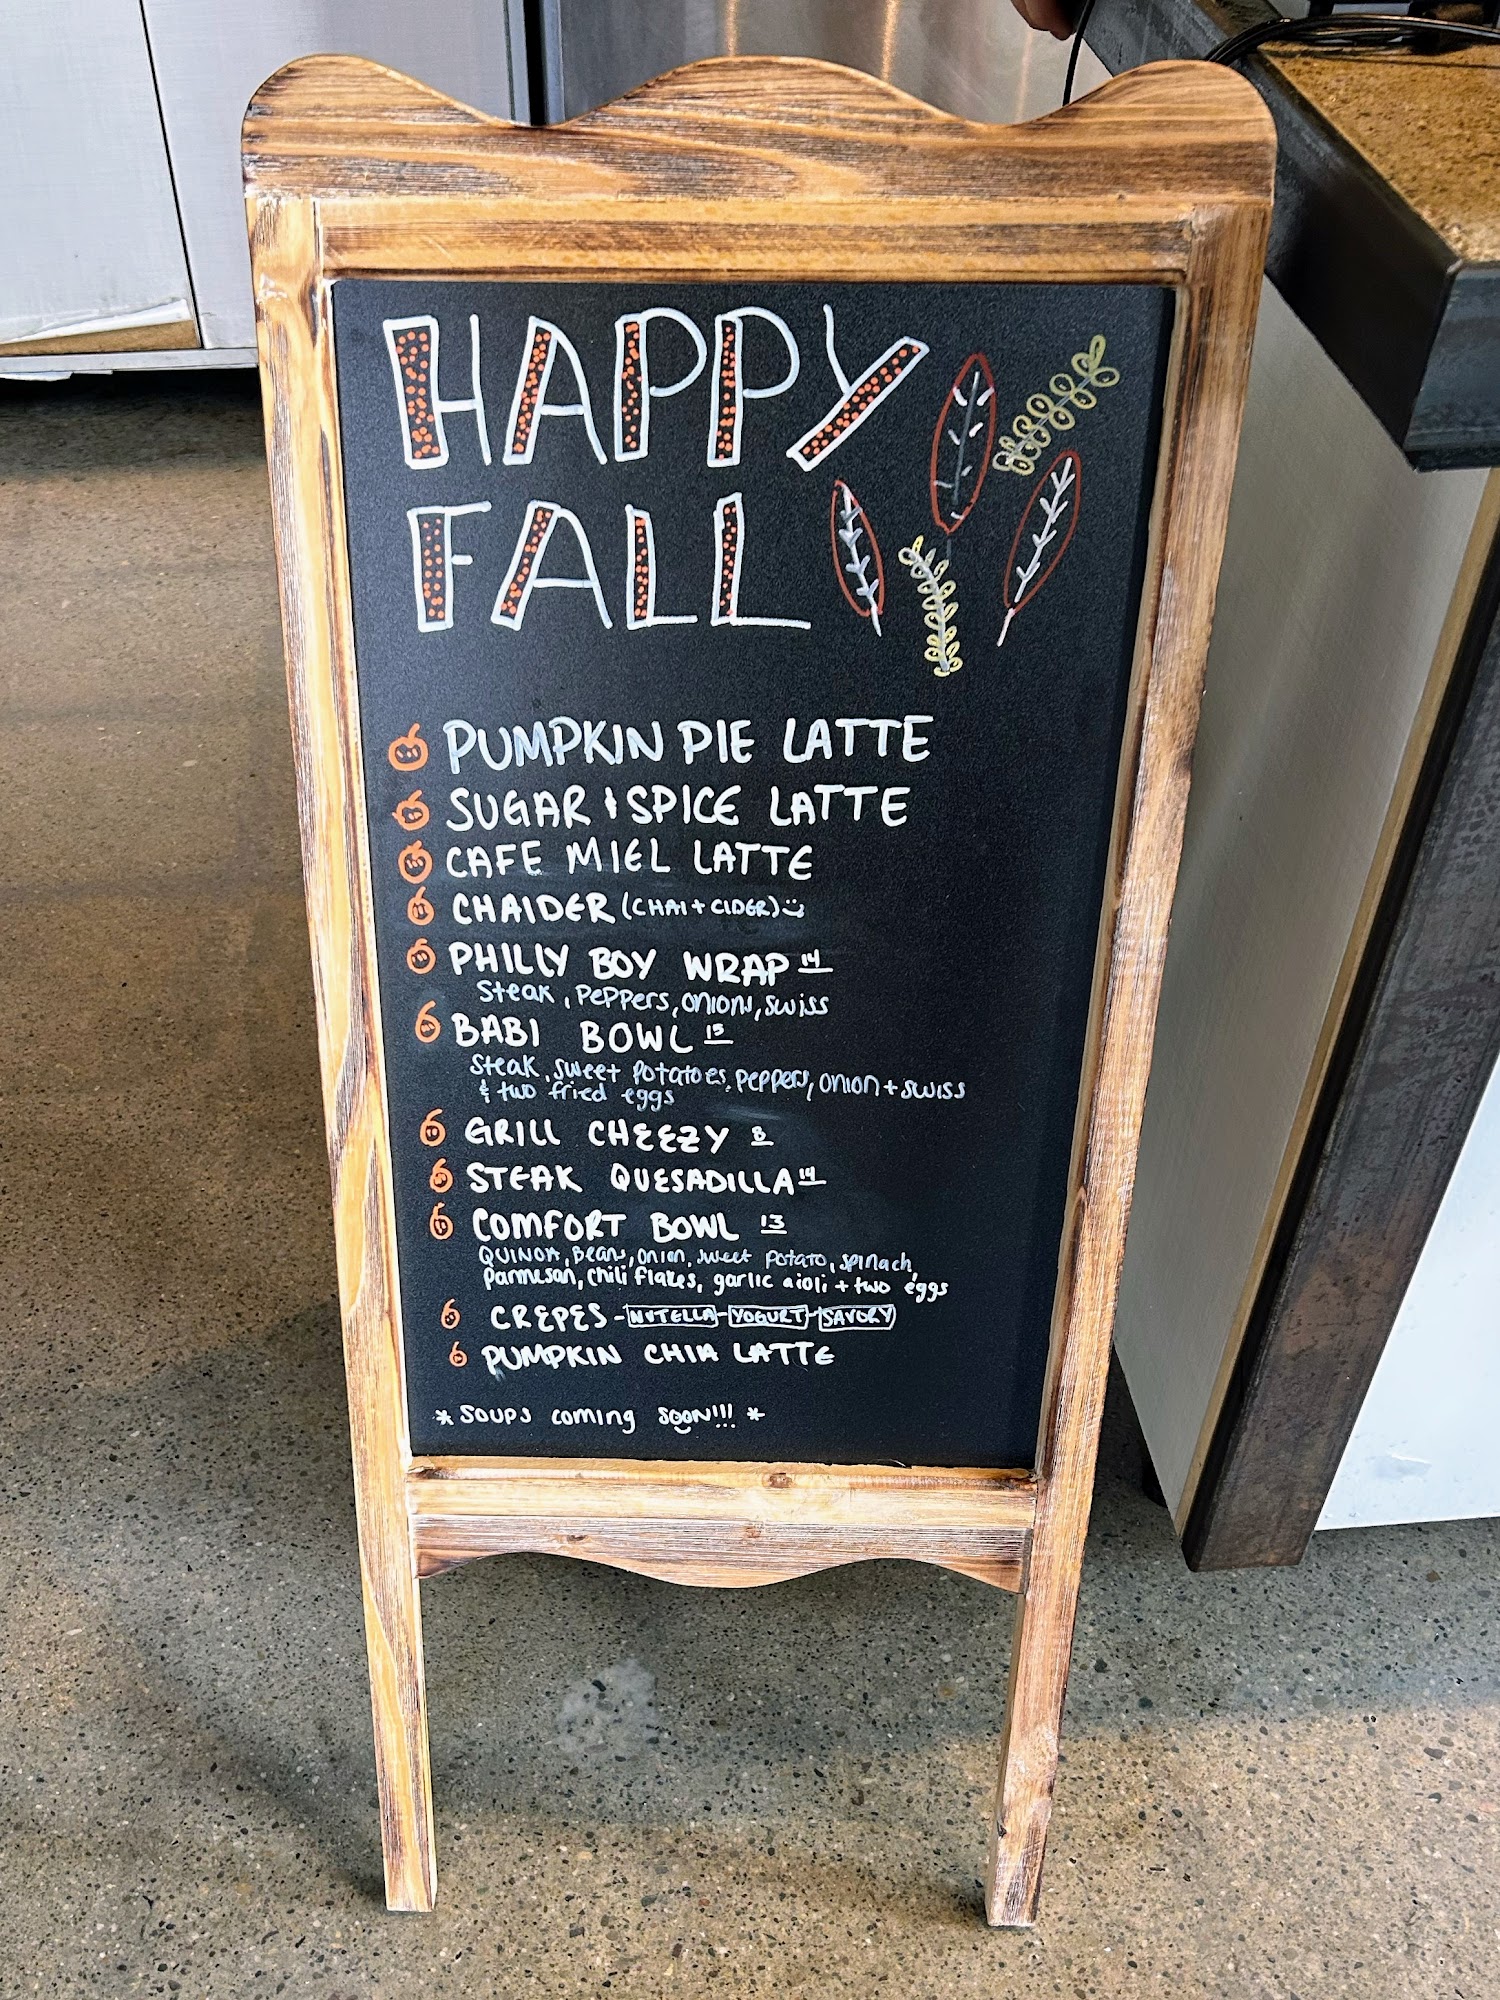 HAPPY
FALL
PUMPKIN PIE LATTE
SUGAR & SPICE LATTE
CAFE MIEL LATTE
CHAIDER (CHAI + CIDER)
PHILLY BOY WRAP 14
Steak, Peppers, onions, swiss
BABI BOWL 15
Steak, sweet potatoes, peppers, onion + swiss
& two fried eggs
GRILL CHEEZY 8
STEAK QUESADILLA 14
COMFORT BOWL 13
QUINOA, Beans, onion, sweet potato, spinach,
parmesan, chili flakes, garlic aioli + two eggs
CREPES - NUTELLA - YOGURT - SAVORY
PUMPKIN CHIA LATTE
* SOUPS coming SOON!!! *